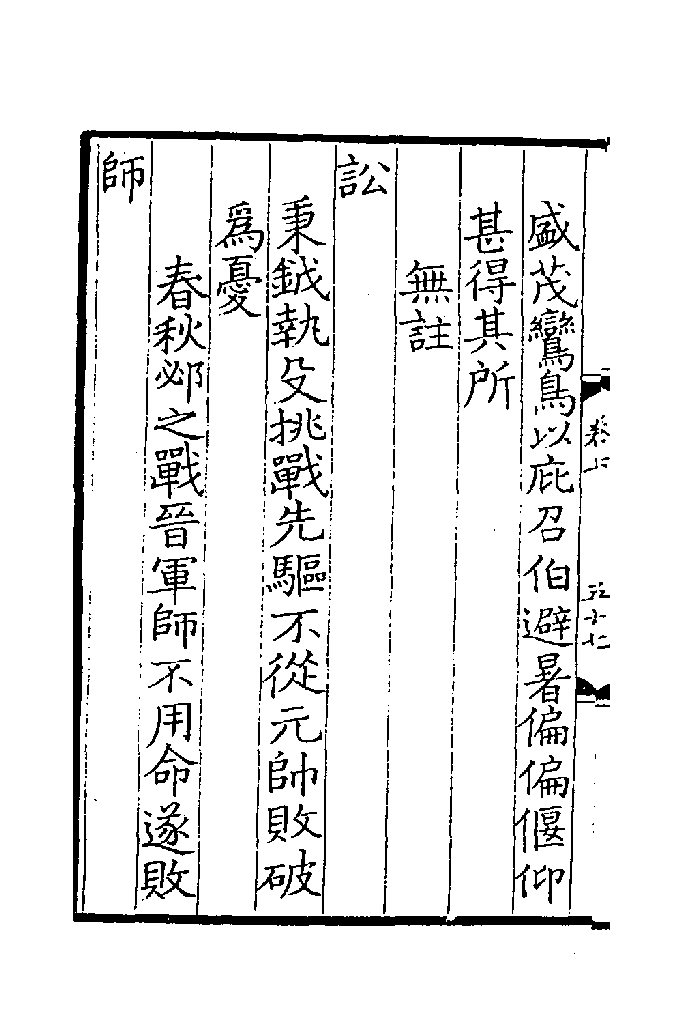 盛茂鸞鳥以庇召伯避暑偏偏偃仰
甚得其所
無註
訟
秉鉞執殳挑戰先驅不從元帥敗破
爲憂
春秋邲之戰晉軍師不用命遂敗
師
卷上
五十七